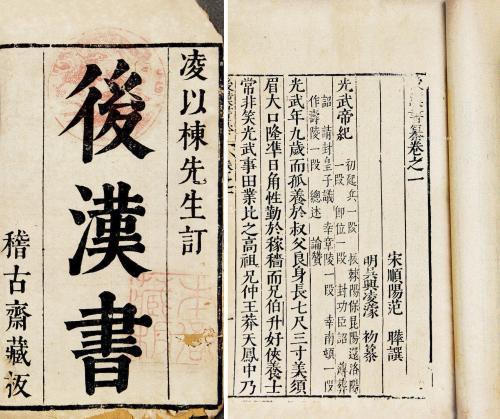 凌以棟先生訂
後漢書
稽古齋藏板
後漢書纂卷之一
宋順陽范 曄譔
明吳興凌濛 初纂
光武帝紀
初起兵一段 長棘陽保昆陽還洛陽
一段 即位一段 封功臣詔 薄葬
詔 請封皇子議 幸章陵一段 幸南頓一段
作壽陵一段 總述 論贊
光武年九歲而孤養於叔父良身長七尺三寸美須
眉大口隆準日角性勤於稼穡而兄伯升好俠養士
常非笑光武事田業比之高祖兄仲王莽天鳳中乃